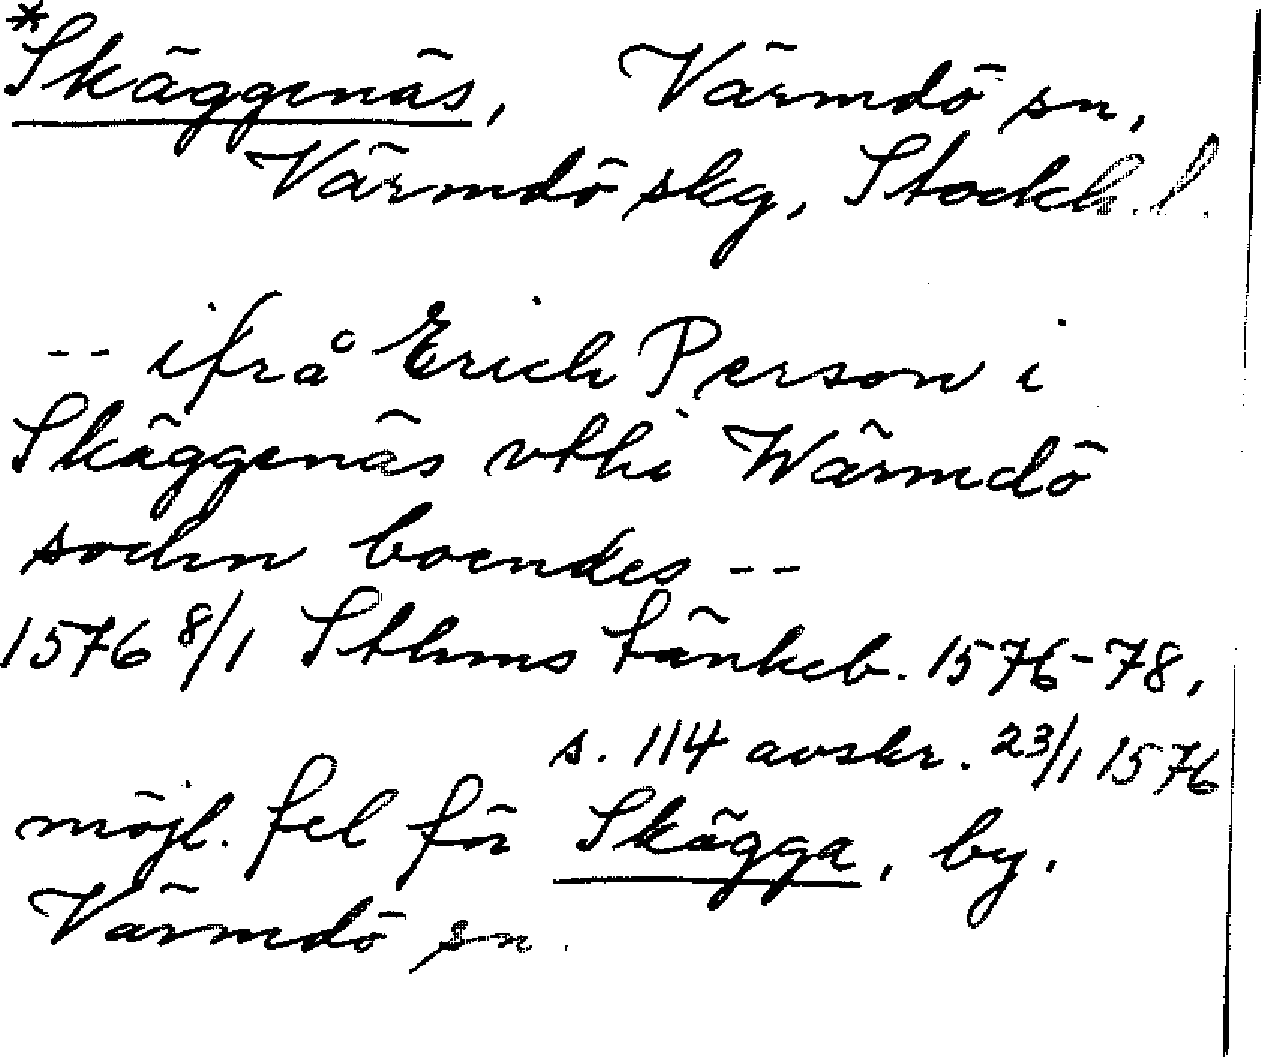 *Skäggenäs, Värmdö sn,
Värmdö skg, Stockh. l.
-- ifrå Erich Person i
Skäggenäs vthi Wärmdö
sochn boendes --
1576 8/1 Sthms tänkeb. 1576-78,
s. 114 avskr. 23/1 1576
möjl. fel för Skägga, by.
Värmdö sn.